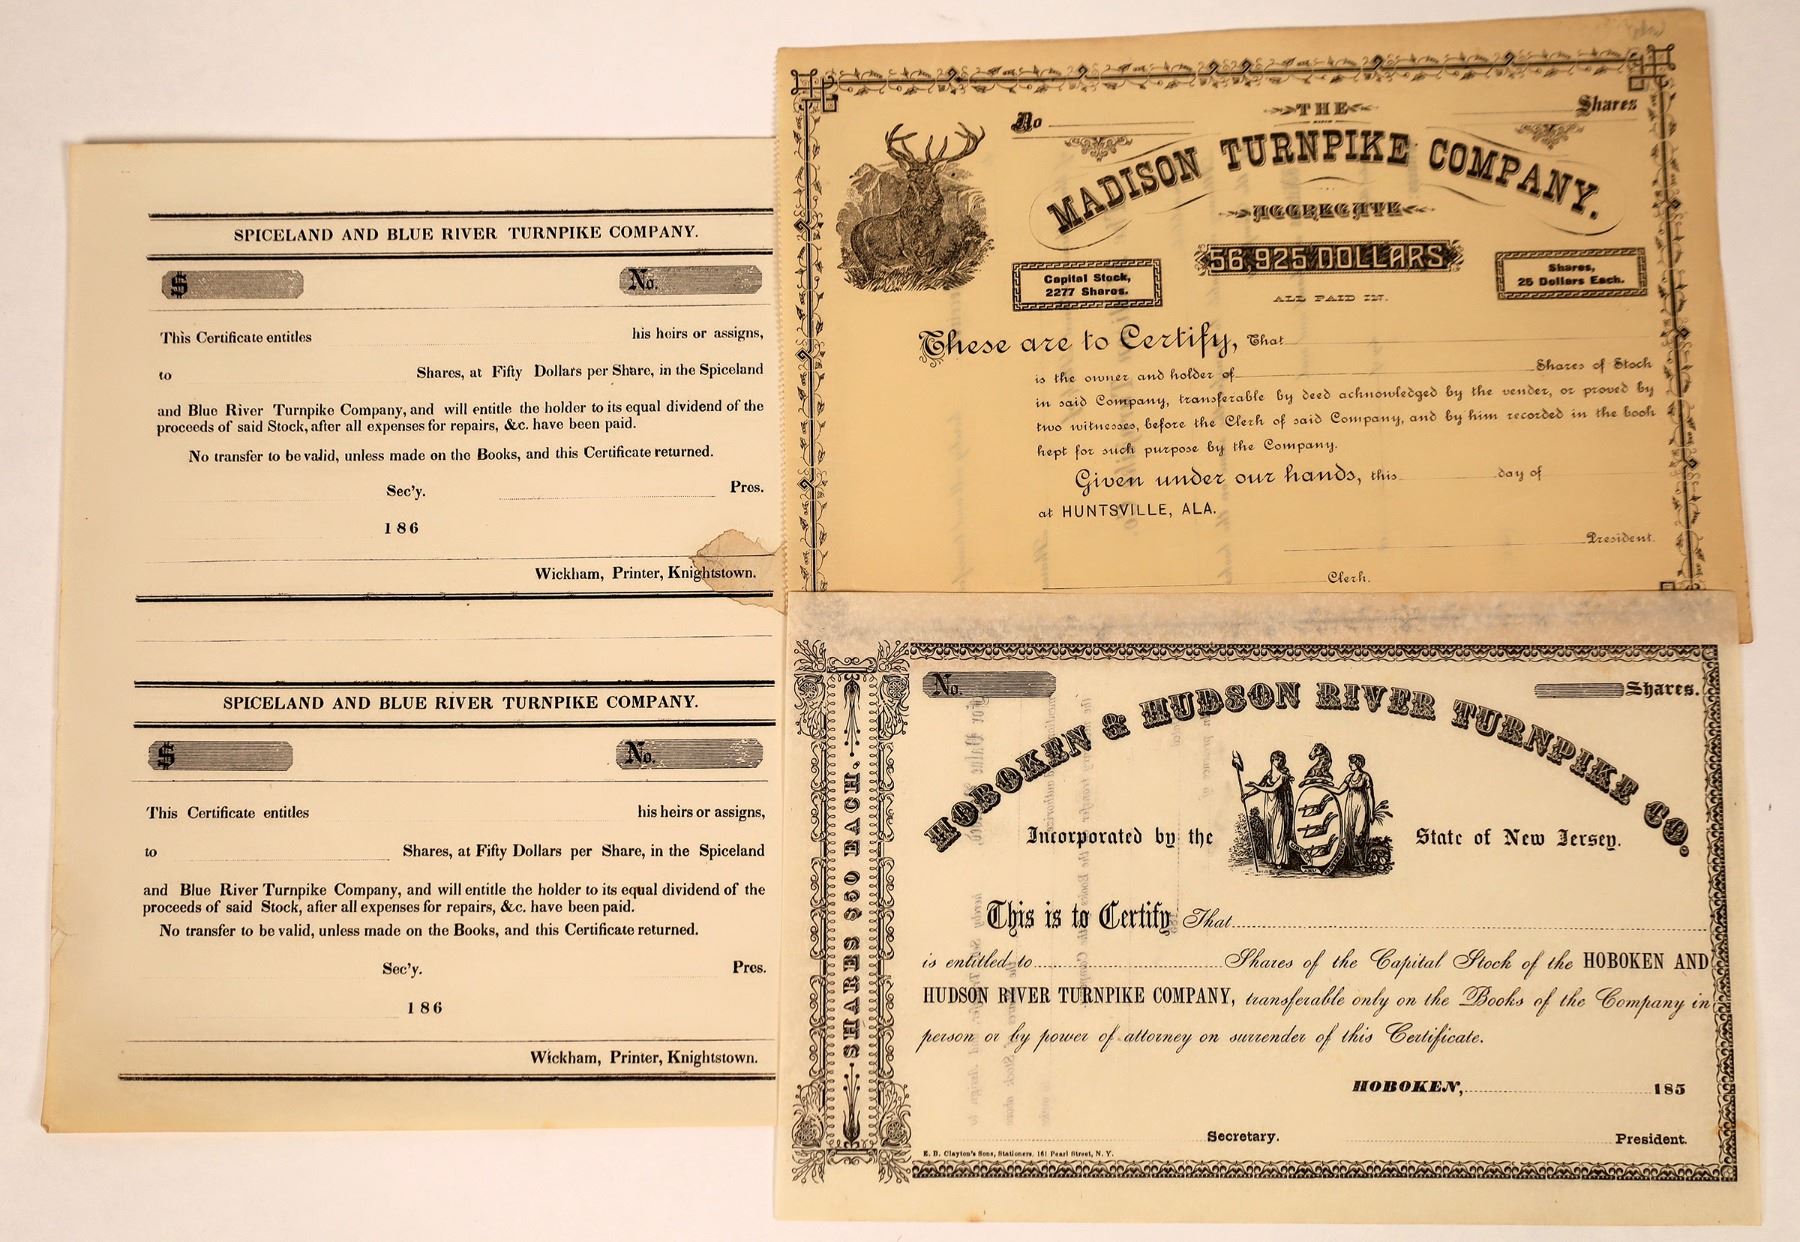 SPICELAND AND BLUE RIVER TURNPIKE COMPANY.
$ No.
This Certificate entitles his heirs or assigns,
to Shares, at Fifty Dollars per Share, in the Spiceland
and Blue River Turnpike Company, and will entitle the holder to its equal dividend of the
proceeds of said Stock, after all expenses for repairs, &c. have been paid.
No transfer to be valid, unless made on the Books, and this Certificate returned.
Sec'y. Pres.
186
Wickham, Printer, Knightstown.
SPICELAND AND BLUE RIVER TURNPIKE COMPANY.
$ No.
This Certificate entitles his heirs or assigns,
to Shares, at Fifty Dollars per Share, in the Spiceland
and Blue River Turnpike Company, and will entitle the holder to its equal dividend of the
proceeds of said Stock, after all expenses for repairs, &c. have been paid.
No transfer to be valid, unless made on the Books, and this Certificate returned.
Sec'y. Pres.
186
Wickham, Printer, Knightstown.
No THE Shares
MADISON TURNPIKE COMPANY.
AGGREGATE
56,925 DOLLARS
Capital Stock,
2277 Shares.
Shares,
25 Dollars Each.
ALL PAID IN.
These are to Certify, That
is the owner and holder of Shares of Stock
in said Company, transferable by deed acknowledged by the vender, or proved by
two witnesses, before the Clerk of said Company, and by him recorded in the book
kept for such purpose by the Company.
Given under our hands, this day of
at HUNTSVILLE, ALA.
President.
Clerk.
SHARES $50 EACH.
No. Shares.
HOBOKEN & HUDSON RIVER TURNPIKE CO.
Incorporated by the State of New Jersey.
This is to Certify That
is entitled to Shares of the Capital Stock of the HOBOKEN AND
HUDSON RIVER TURNPIKE COMPANY, transferable only on the Books of the Company in
person or by power of attorney on surrender of this Certificate.
HOBOKEN, 185
Secretary. President.
E. B. Clayton's Sons, Stationers, 161 Pearl Street, N. Y.